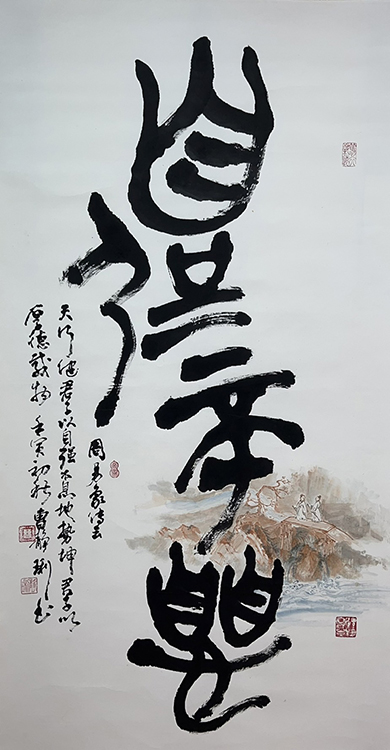 自強不息
周易象傳云
天行健君子以自强不息地勢坤君子以
厚德載物 壬寅初秋 曹靜 书